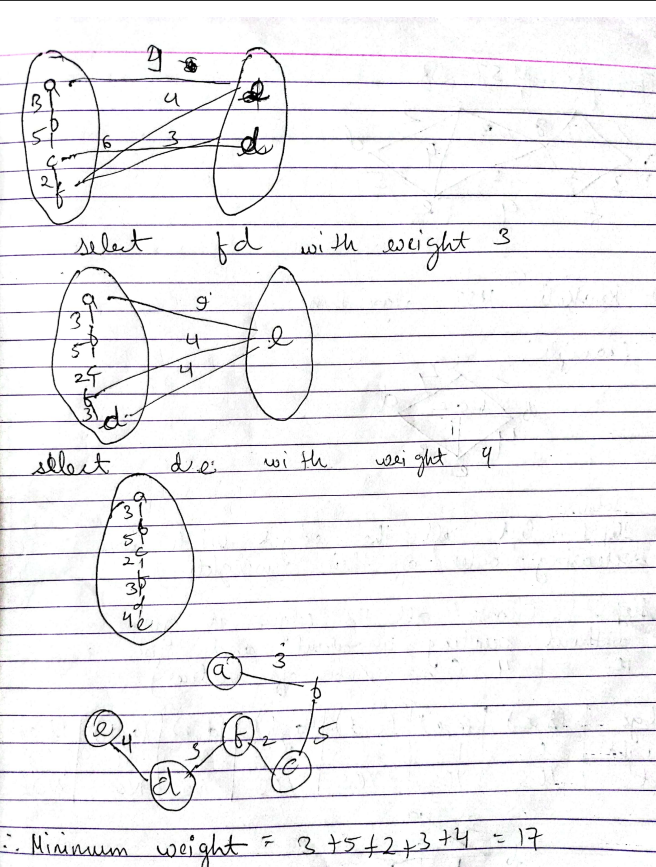 9
a e
3 4
b
5 6 3
c d
2
f
select fd with weight 3
a 9
3
b e
5 4
c 4
2
f
3 d
select de with weight 4
a
3
b
5
c
2
f
3
d
4 e
a 3
b
e f
4 3 2 5
d c
∴ Minimum weight = 3 +5 +2 +3 +4 = 17